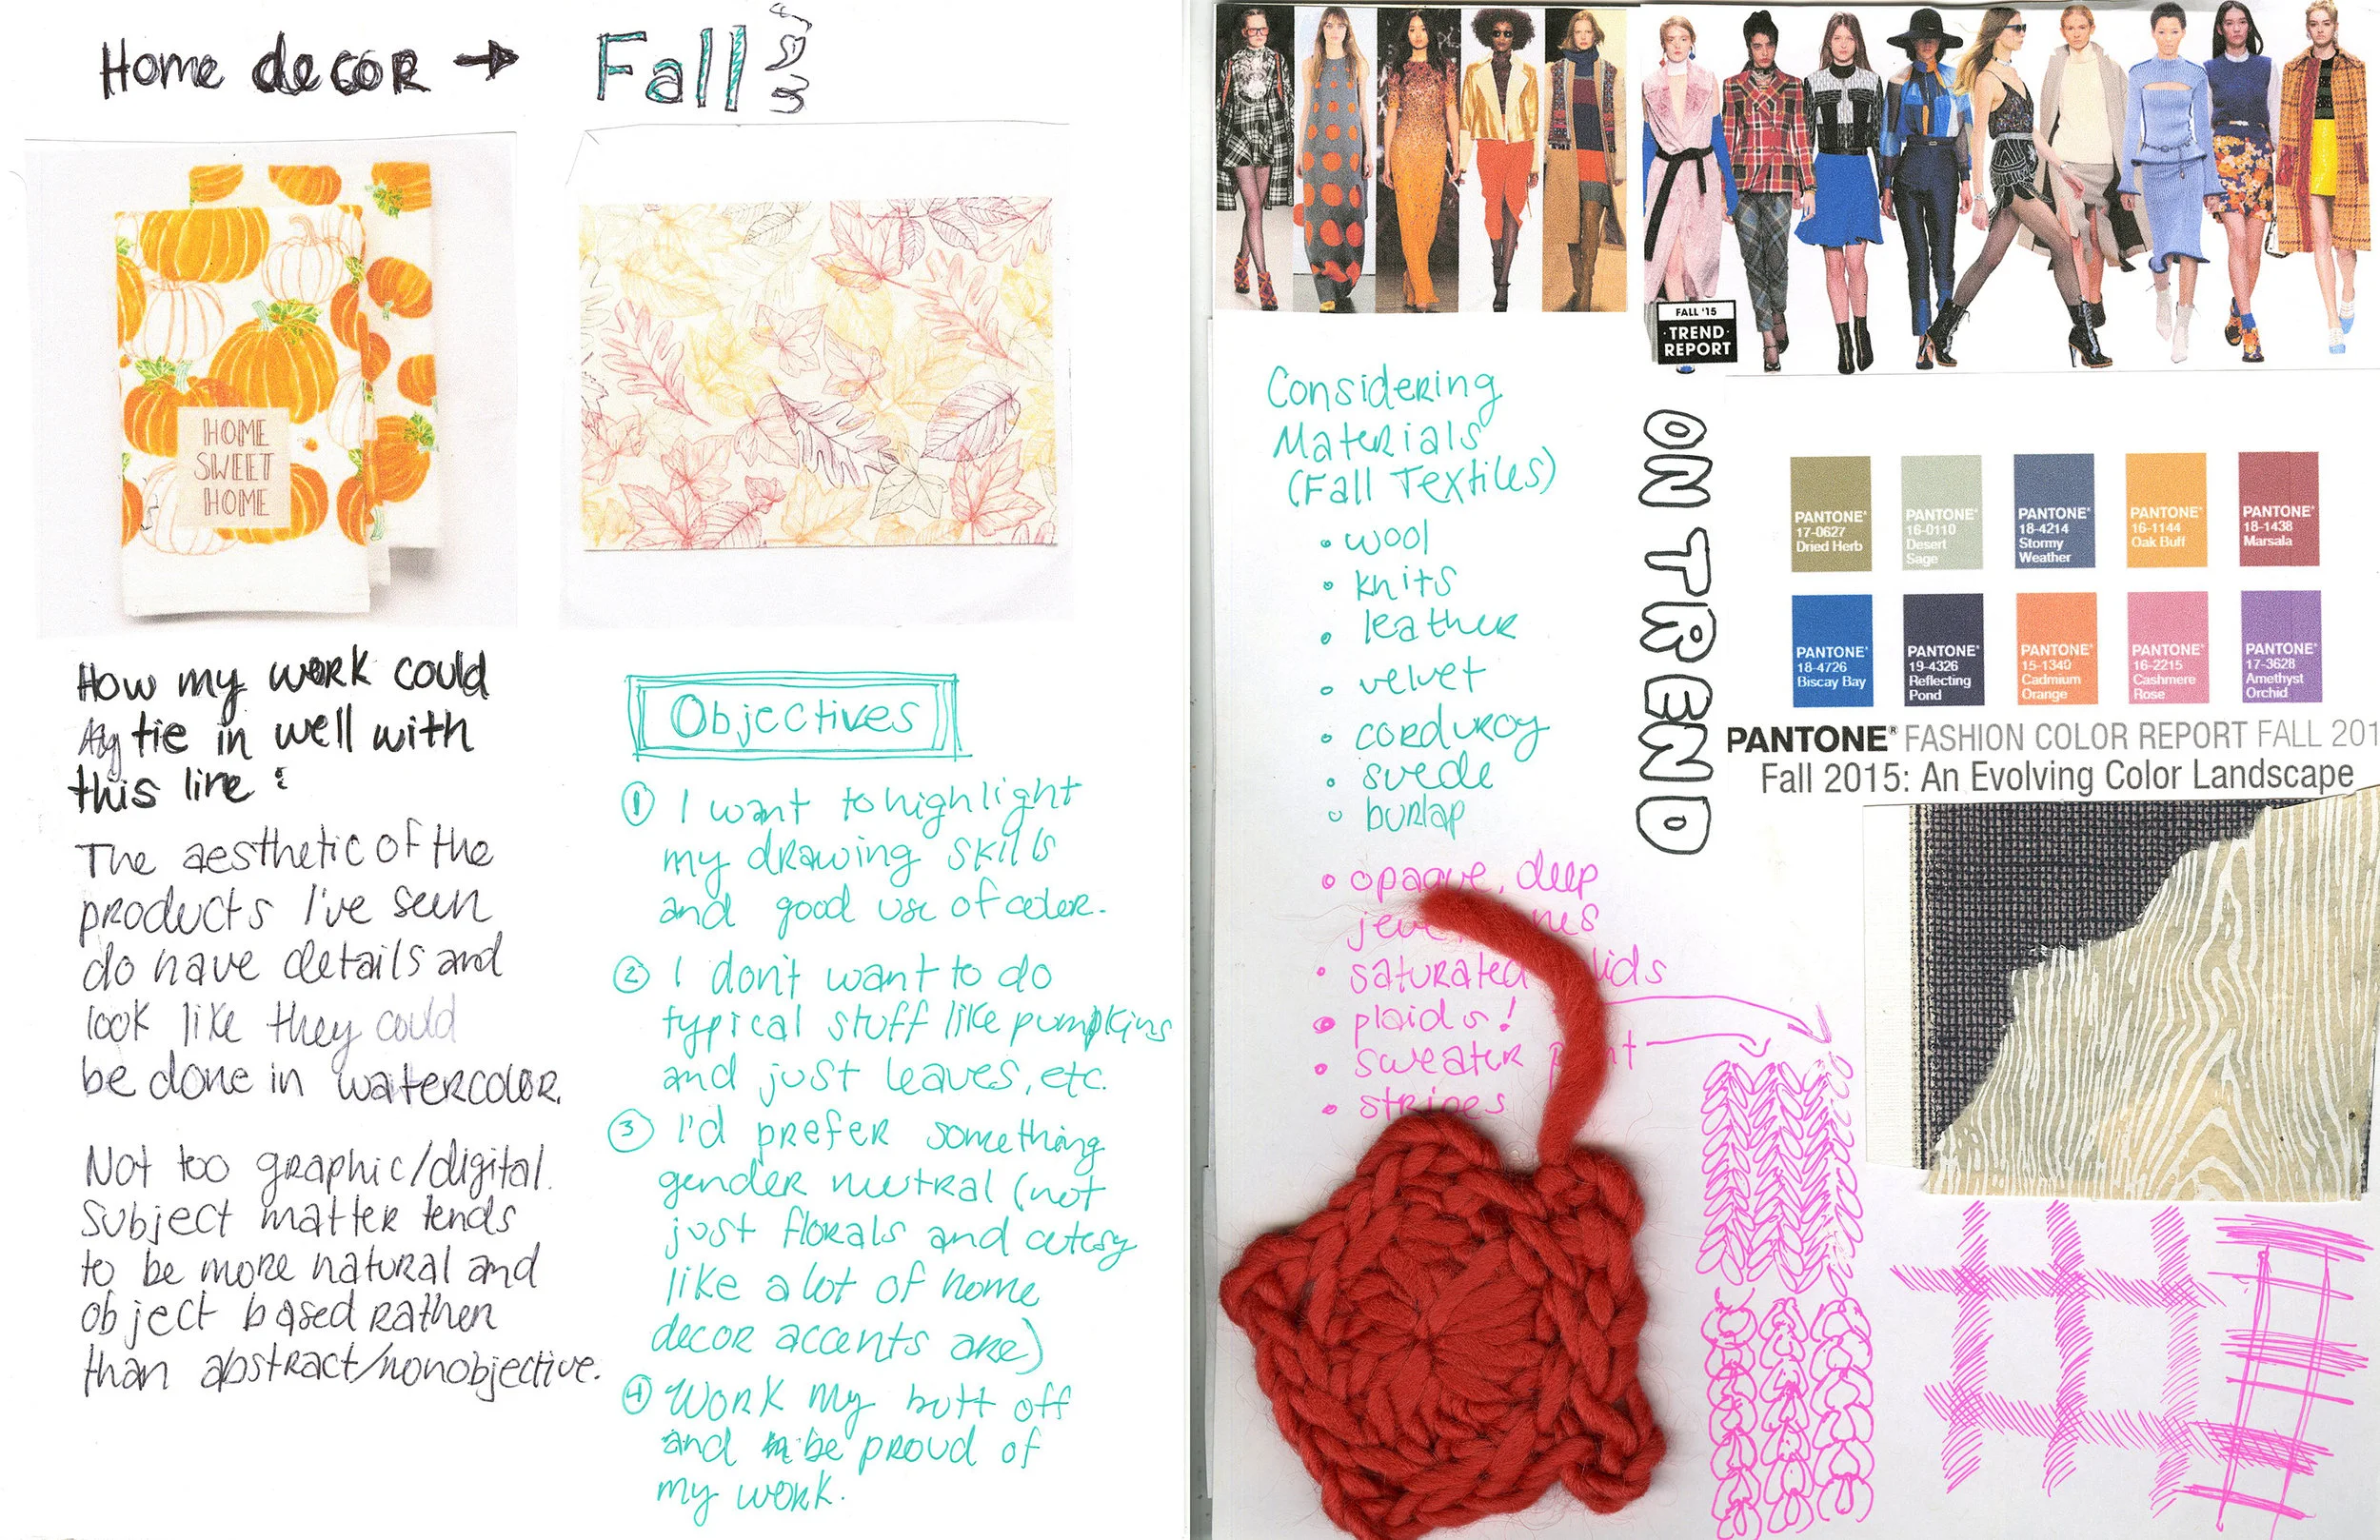 Home decor → Fall
HOME
SWEET
HOME
How my work could
tie in well with
this line:
The aesthetic of the
products I've seen
do have details and
look like they could
be done in watercolor.
Not too graphic/digital.
Subject matter tends
to be more natural and
object based rather
than abstract/nonobjective.
Objectives
① I want to highlight
my drawing skills
and good use of color.
② I don't want to do
typical stuff like pumpkins
and just leaves, etc.
③ I'd prefer something
gender neutral (not
just florals and cutesy
like a lot of home
decor accents are)
④ Work my butt off
and be proud of
my work.
FALL '15
·TREND·
REPORT
Considering
Materials
(Fall Textiles)
• wool
• knits
• leather
• velvet
• corduroy
• suede
• burlap
• opaque, deep
• saturated
• plaids!
• sweater
• stripes
ON TREND
PANTONE®
17-0627
Dried Herb
PANTONE®
16-0110
Desert
Sage
PANTONE®
18-4214
Stormy
Weather
PANTONE®
16-1144
Oak Buff
PANTONE®
18-1438
Marsala
PANTONE®
18-4726
Biscay Bay
PANTONE®
19-4326
Reflecting
Pond
PANTONE®
15-1340
Cadmium
Orange
PANTONE®
16-2215
Cashmere
Rose
PANTONE®
17-3628
Amethyst
Orchid
PANTONE® FASHION COLOR REPORT FALL 201
Fall 2015: An Evolving Color Landscape